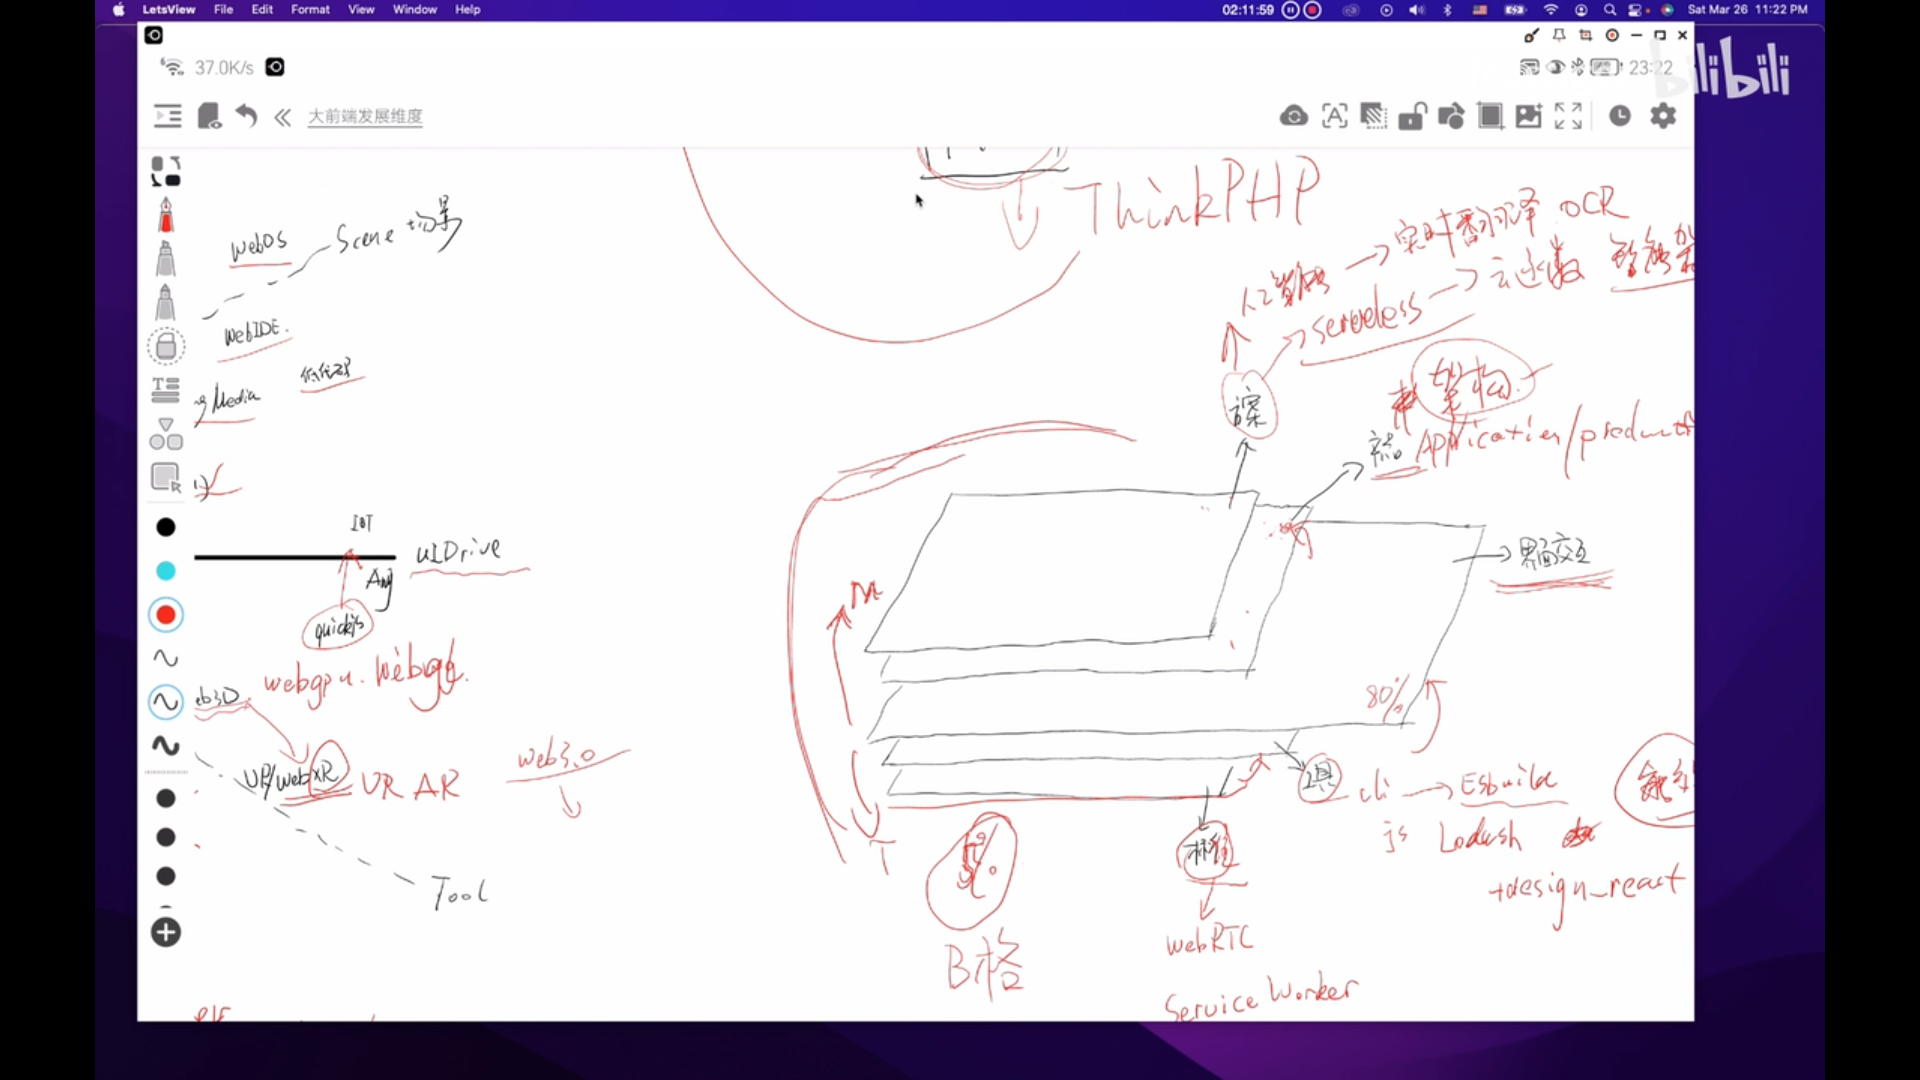 LetsView File Edit Format View Window Help
02:11:59
Sat Mar 26 11:22 PM
37.0K/s
23:22
bilibili
大前端发展维度
ThinkPHP
webOS
Scene 场景
webIDE.
Media
低代码
IOT
UIDrive
Any
quickjs
webgpu. Webgl.
eb3D
VR/webXR VR AR
web3.0
Tool
人工智能 → 实时翻译 OCR
serverless → 云函数
智能
方案
架构
Application/product
界面交互
M
80%
T
工具
cli → Esbuild
js Lodash
tdesign_react
B格
标准
webRTC
Service Worker